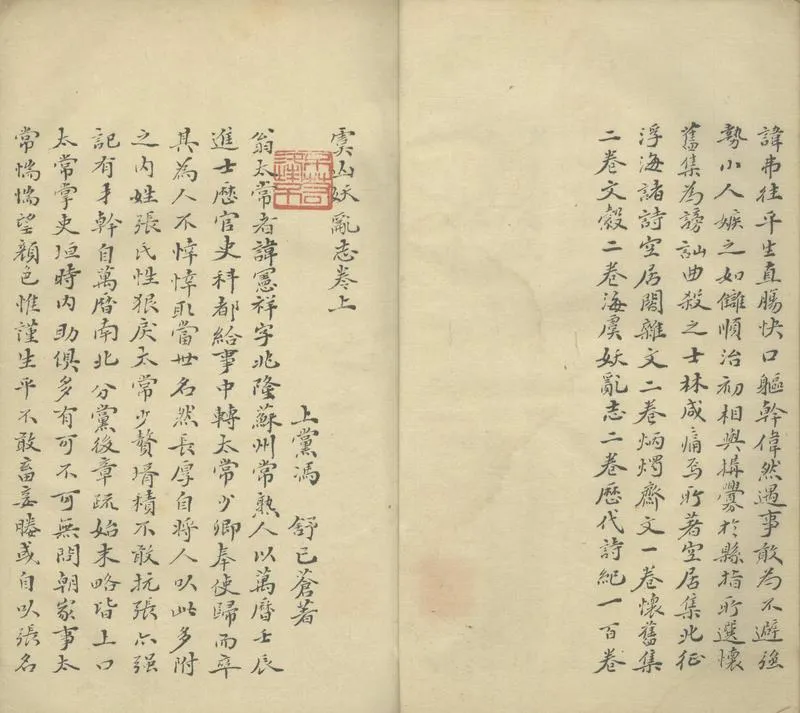 諱弗往平生直腸快口軀幹偉然遇事敢為不避強
勢小人嫉之如讎順治初相與搆釁於縣指所選懷
舊集為謗訕曲殺之士林咸痛焉所著空居集北征
浮海諸詩空居閣雜文二卷炳燭齋文一卷懷舊集
二卷文瀫二卷海虞妖亂志二卷歷代詩紀一百卷
虞山妖亂志卷上
上黨馮 舒已蒼著
翁太常者諱憲祥字兆隆蘇州常熟人以萬曆壬辰
進士歷官吏科都給事中轉太常少卿奉使歸而卒
其為人不悻悻取當世名然長厚自將人以此多附
之内姓張氏性狠戾太常少贅壻積不敢抗張亦强
記有才幹自萬曆南北分黨後章疏始末略皆上口
太常掌吏垣時内助俱多有可不可無問朝家事太
常惴惴望顏色惟謹生平不敢畜妾媵或自以張名